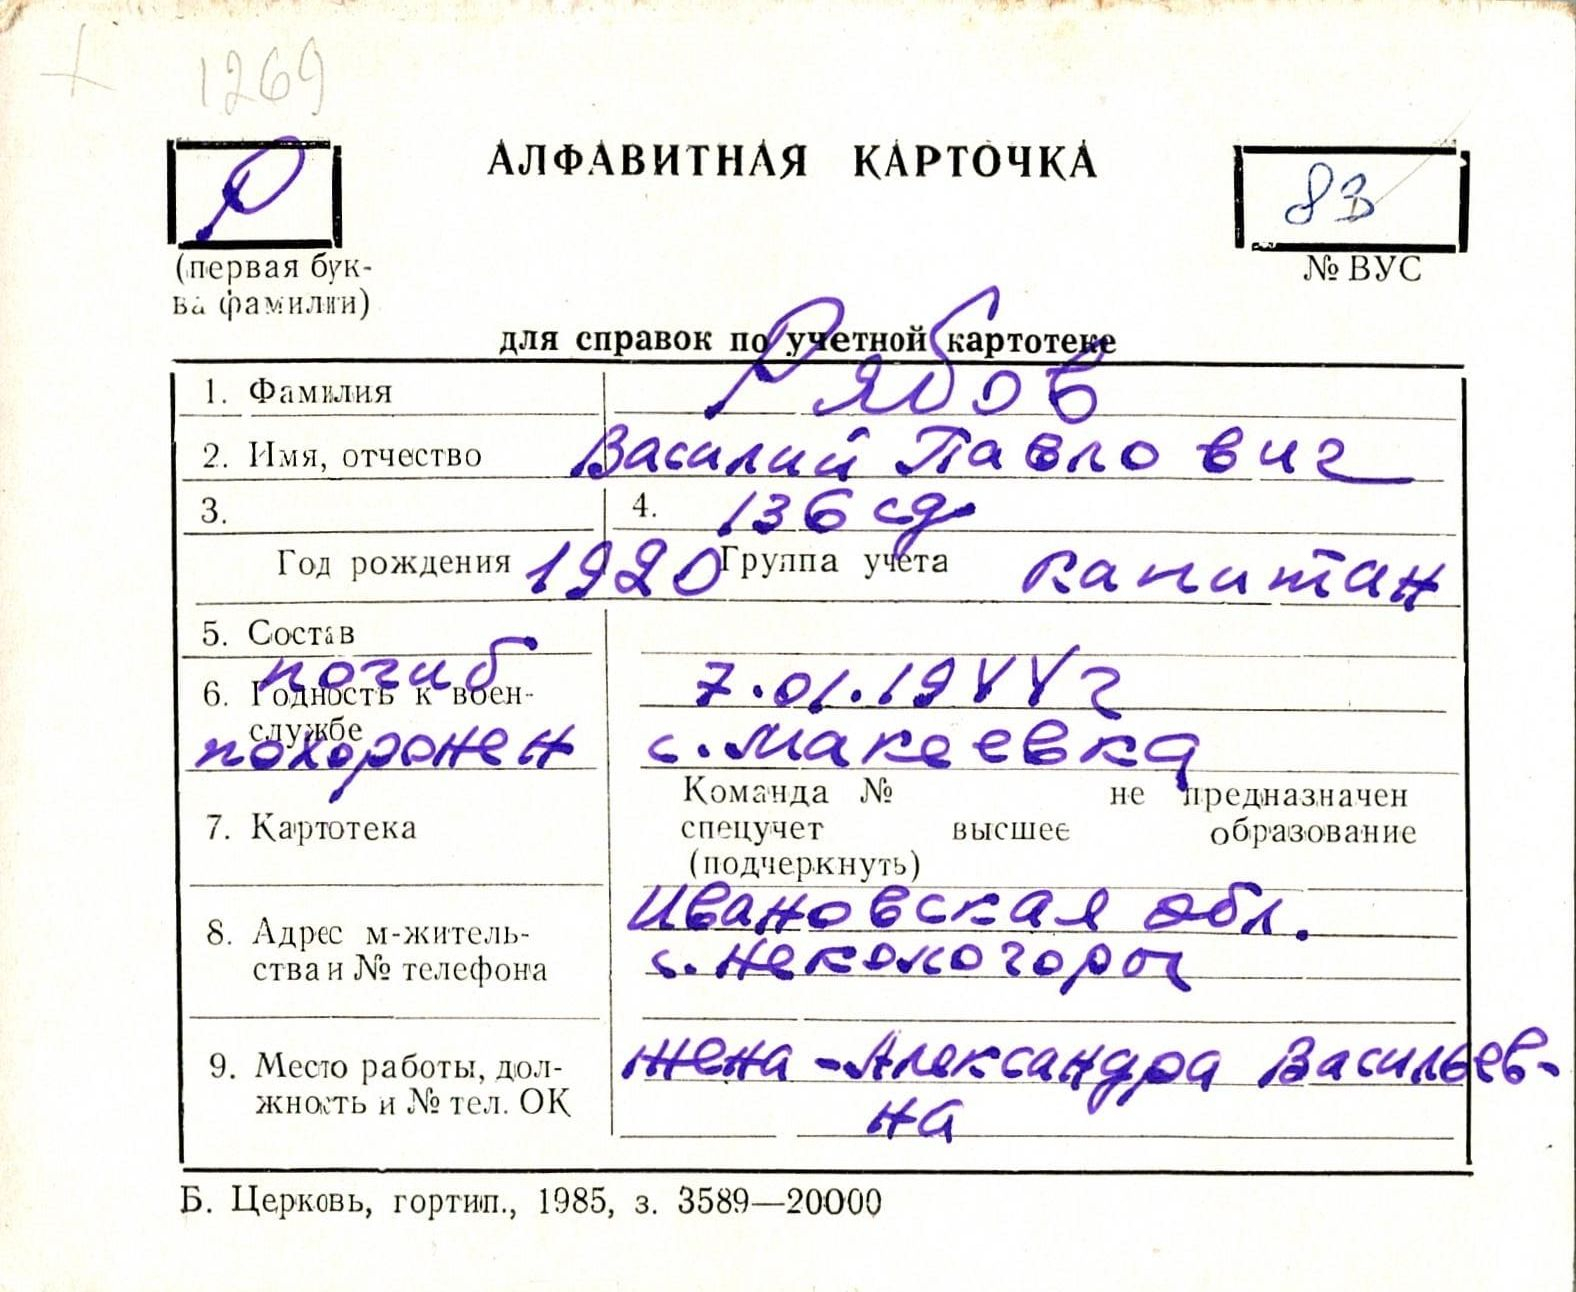 1269
Р
АЛФАВИТНАЯ КАРТОЧКА
83
(первая бук-
ва фамилии)
№ ВУС
для справок по учетной картотеке
1. Фамилия Рябов
2. Имя, отчество Василий Павлович
3. 4. 136 сд
Год рождения 1920 Группа учёта капитан
5. Состав
погиб 7.01.1944 г
6. Годность к воен-
службе
похоронен с. Макеевка
7. Картотека
Команда № не предназначен
спецучет высшее образование
(подчеркнуть)
8. Адрес м-житель-
ства и № телефона
Ивановская обл.
с.
9. Место работы, дол-
жность и № тел. ОК
жена - Александра Васильев-
на
Б. Церковь, гортип., 1985, з. 3589—20000